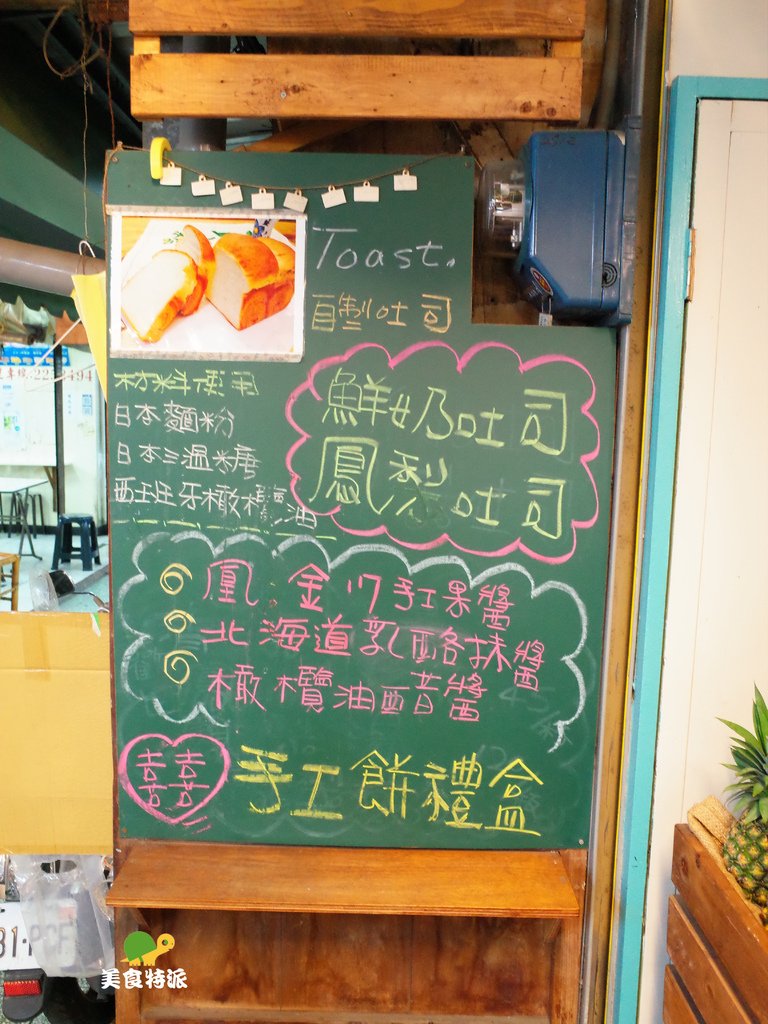 Toast.
自製吐司
材料使用
日本麵粉
日本三溫糖
西班牙橄欖油
鮮奶吐司
鳳梨吐司
鳳.金川手工果醬
北海道乳酪抹醬
橄欖油醋醬
囍
手工餅禮盒
美食特派